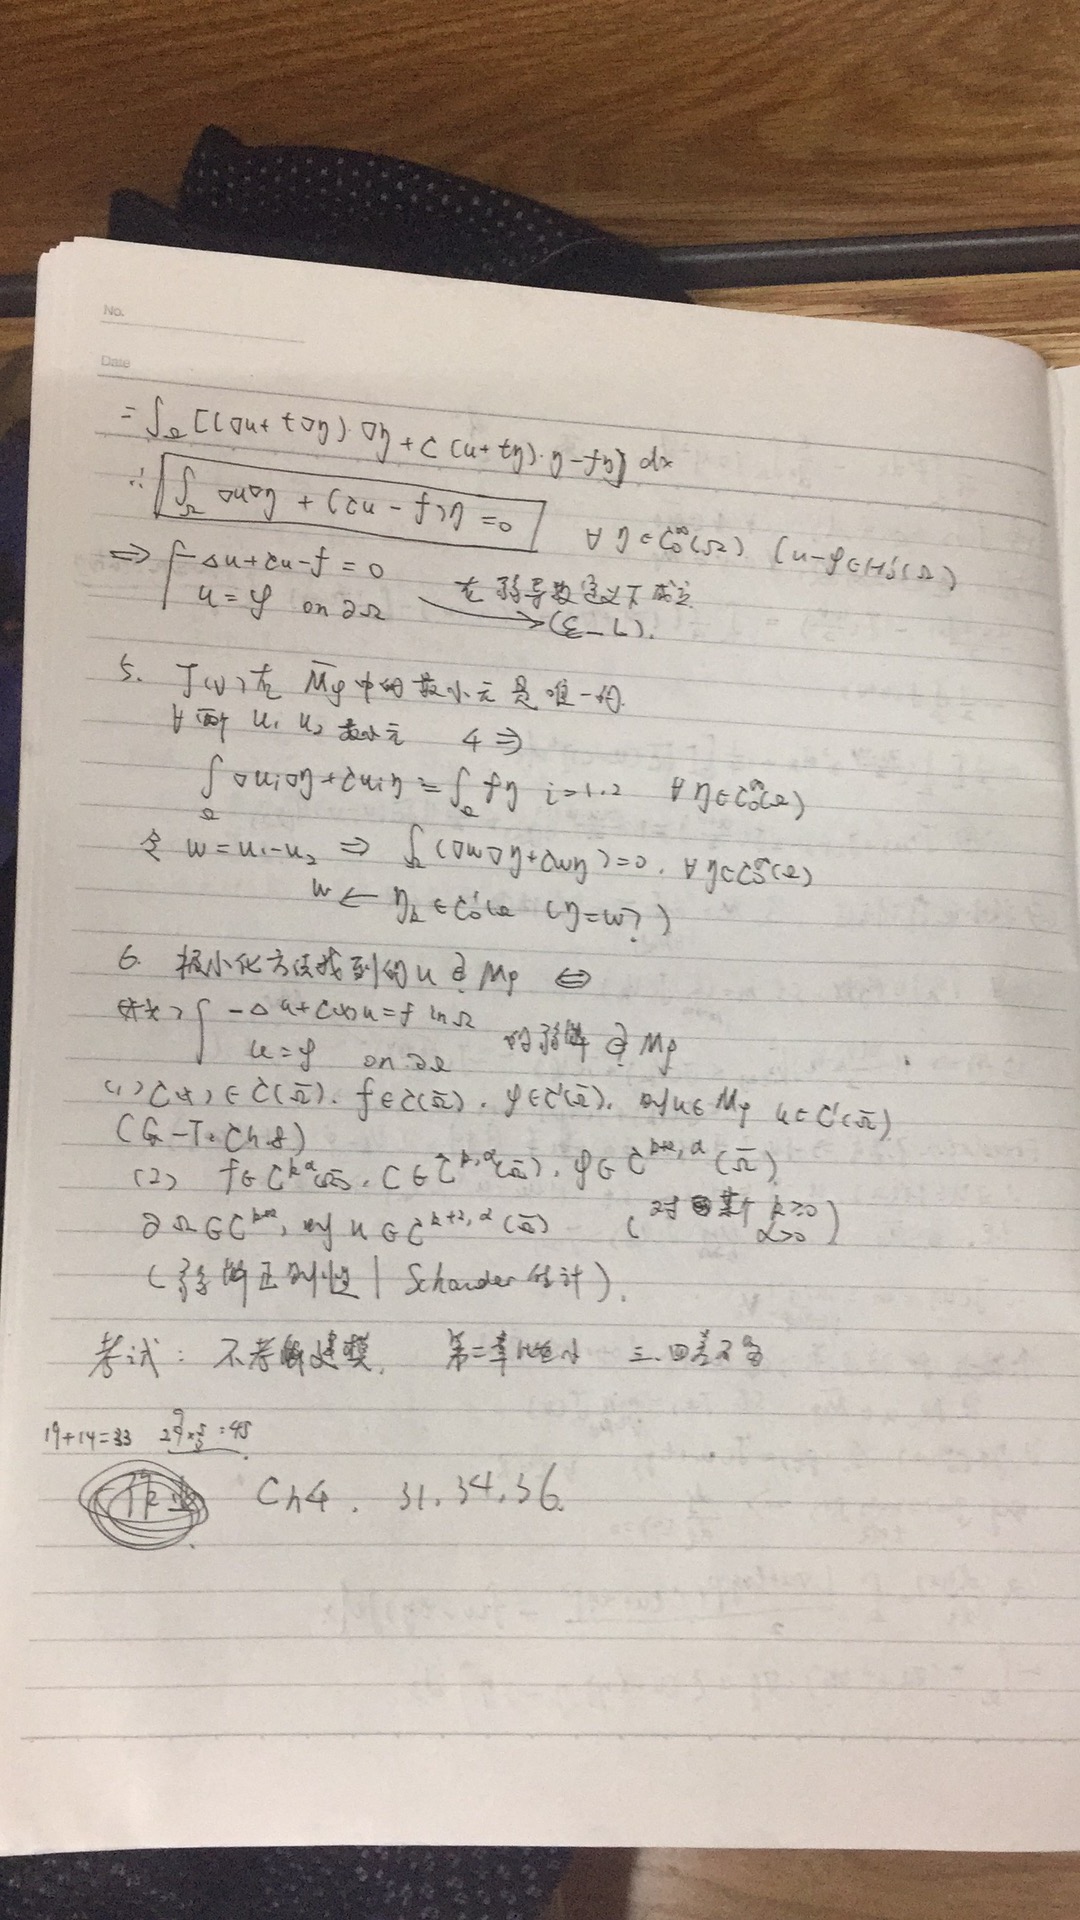 No.
Date
= ∫_Ω [(∇u + t∇η)·∇η + C(u+tη)·η − fη] dx
∴ ∫_Ω ∇u∇η + (cu − f)η = 0 ∀ η ∈ C₀^∞(Ω) (u−φ∈H₀¹(Ω)
⟹ { −Δu + cu − f = 0
u = φ on ∂Ω 在弱导数意义下成立
(E−L).
5. J(v)在 M̄φ中的最小元是唯一的.
∀ 两个 u₁ u₂ 最小元 4 ⇒
∫_Ω ∇uᵢ∇η + cuᵢη = ∫_Ω fη i=1.2 ∀ η∈C₀^∞(Ω)
令 w = u₁−u₂ ⇒ ∫_Ω (∇w∇η + cwη) = 0. ∀ η∈C₀^∞(Ω)
w ← η_k ∈ C₀¹(Ω (η=w?)
6. 极小化方法找到的u ∂ Mφ ⇔
{ −Δu + c(x)u = f in Ω
u = φ on ∂Ω 的弱解 ∂ Mφ
(1) C(x) ∈ C(Ω̄). f∈C(Ω̄). φ∈C¹(Ω̄). 则u∈Mφ u∈C¹(Ω̄)
(G−T. Ch.8)
(2) f∈C^{k,α}(Ω̄). C∈C^{k,α}(Ω̄). φ∈C^{k+2,α}(Ω̄)
∂Ω∈C^{k+2}, 则 u∈C^{k+2,α}(Ω̄) (对某个 k≥0 α>0)
(弱解正则性 | Schauder 估计).
考试: 不考建模. 第二章 三.四差不多
19+14=33 29×5/3=45
作业 Ch4. 31.34.36.